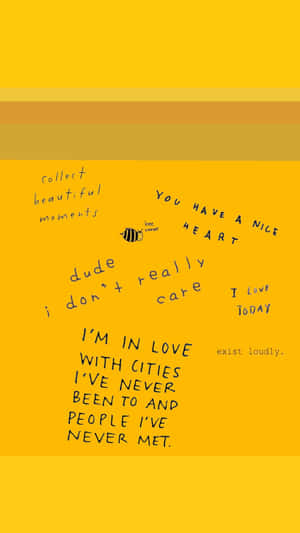 collect
beautiful
moments
YOU HAVE A NICE
HEART
dude
i don't really
care
I LOVE
TODAY
exist loudly.
I'M IN LOVE
WITH CITIES
I'VE NEVER
BEEN TO AND
PEOPLE I'VE
NEVER MET.